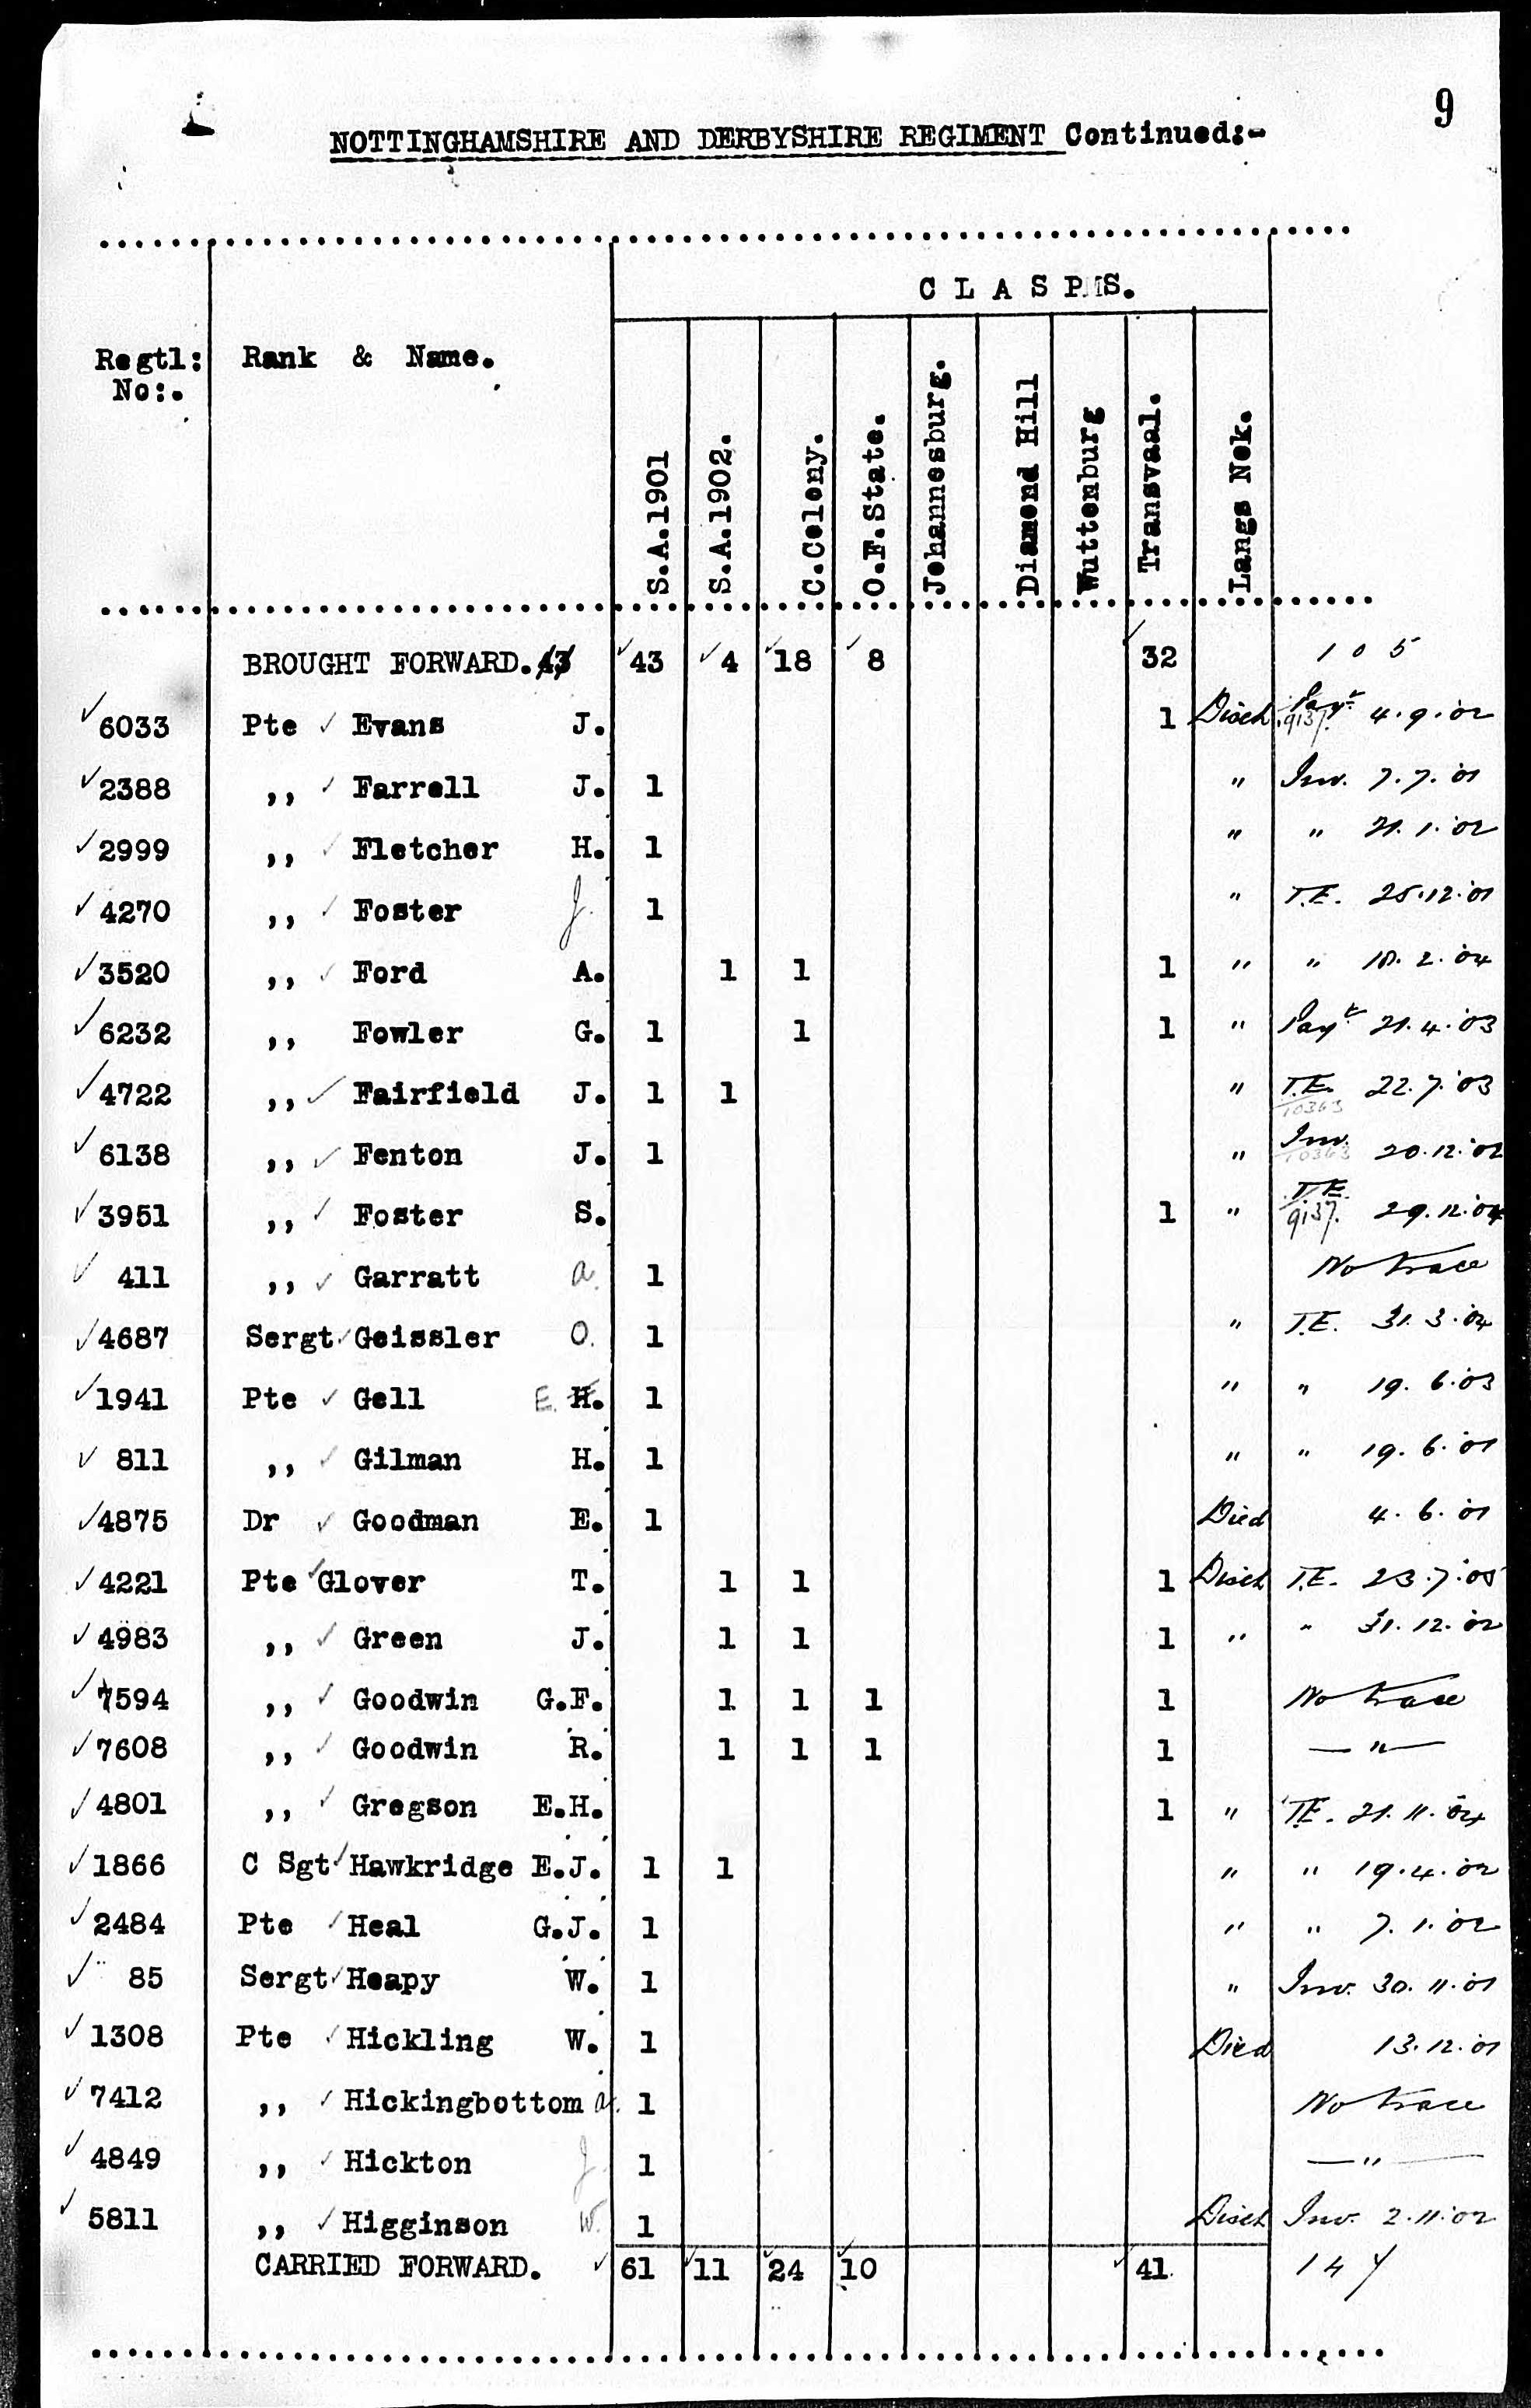 9
NOTTINGHAMSHIRE AND DERBYSHIRE REGIMENT Continued:-
C L A S P S.
Regtl: No:. Rank & Name. S.A.1901 S.A.1902. C.Colony. O.F.State. Johannesburg. Diamond Hill Wuttenburg Transvaal. Langs Nek.
BROUGHT FORWARD. 43 43 4 18 8 32 105
6033 Pte Evans J. 1 Disch Payt 9137. 4.9.02
2388 ,, Farrell J. 1 " Inv. 7.7.01
2999 ,, Fletcher H. 1 " " 21.1.02
4270 ,, Foster J. 1 " T.E. 25.12.01
3520 ,, Ford A. 1 1 1 " " 18.2.04
6232 ,, Fowler G. 1 1 1 " Payt 21.4.03
4722 ,, Fairfield J. 1 1 " T.E. 10363 22.7.03
6138 ,, Fenton J. 1 " Inv. 10363 20.12.02
3951 ,, Foster S. 1 " T.E. 9137. 29.12.04
411 ,, Garratt A. 1 No trace
4687 Sergt Geissler O. 1 " T.E. 31.3.04
1941 Pte Gell E. H. 1 " " 19.6.03
811 ,, Gilman H. 1 " " 19.6.01
4875 Dr Goodman E. 1 Died 4.6.01
4221 Pte Glover T. 1 1 1 Disch T.E. 23.7.05
4983 ,, Green J. 1 1 1 " " 31.12.02
7594 ,, Goodwin G.F. 1 1 1 1 No trace
7608 ,, Goodwin R. 1 1 1 1 — " —
4801 ,, Gregson E.H. 1 " T.E. 21.11.04
1866 C Sgt Hawkridge E.J. 1 1 " " 19.4.02
2484 Pte Heal G.J. 1 " " 7.1.02
85 Sergt Heapy W. 1 " Inv. 30.11.01
1308 Pte Hickling W. 1 Died 13.12.01
7412 ,, Hickingbottom A. 1 No trace
4849 ,, Hickton J. 1 — " —
5811 ,, Higginson W. 1 Disch Inv. 2.11.02
CARRIED FORWARD. 61 11 24 10 41